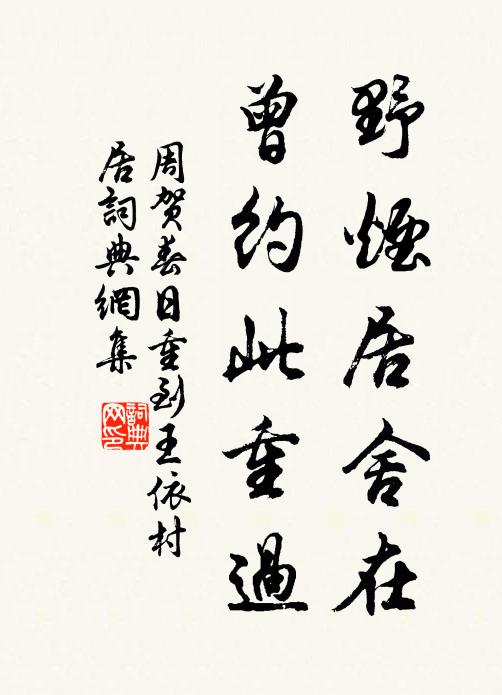 野煙居舍在
曾約此重過
周賀春日重到王依村
居詞典網集
詞典网印